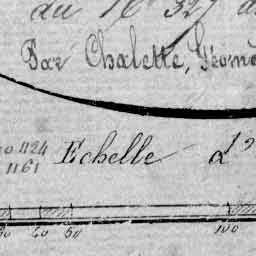 du N° 327 d
Par Chalette, Géomè
no 1124
1161
Echelle d'
40 50 100